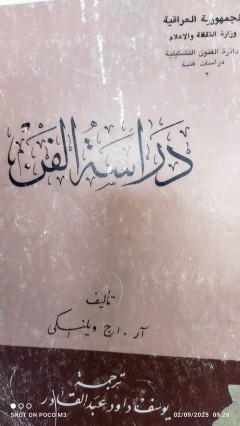 الجمهورية العراقية
وزارة الثقافة والاعلام
دائرة الفنون التشكيلية
دراسات فنية
٢
دراسة الفن
تأليف
آر . اج ويلنسكي
ترجمة
يوسف داود عبد القادر
SHOT ON POCO M3
02/09/2025 09:26